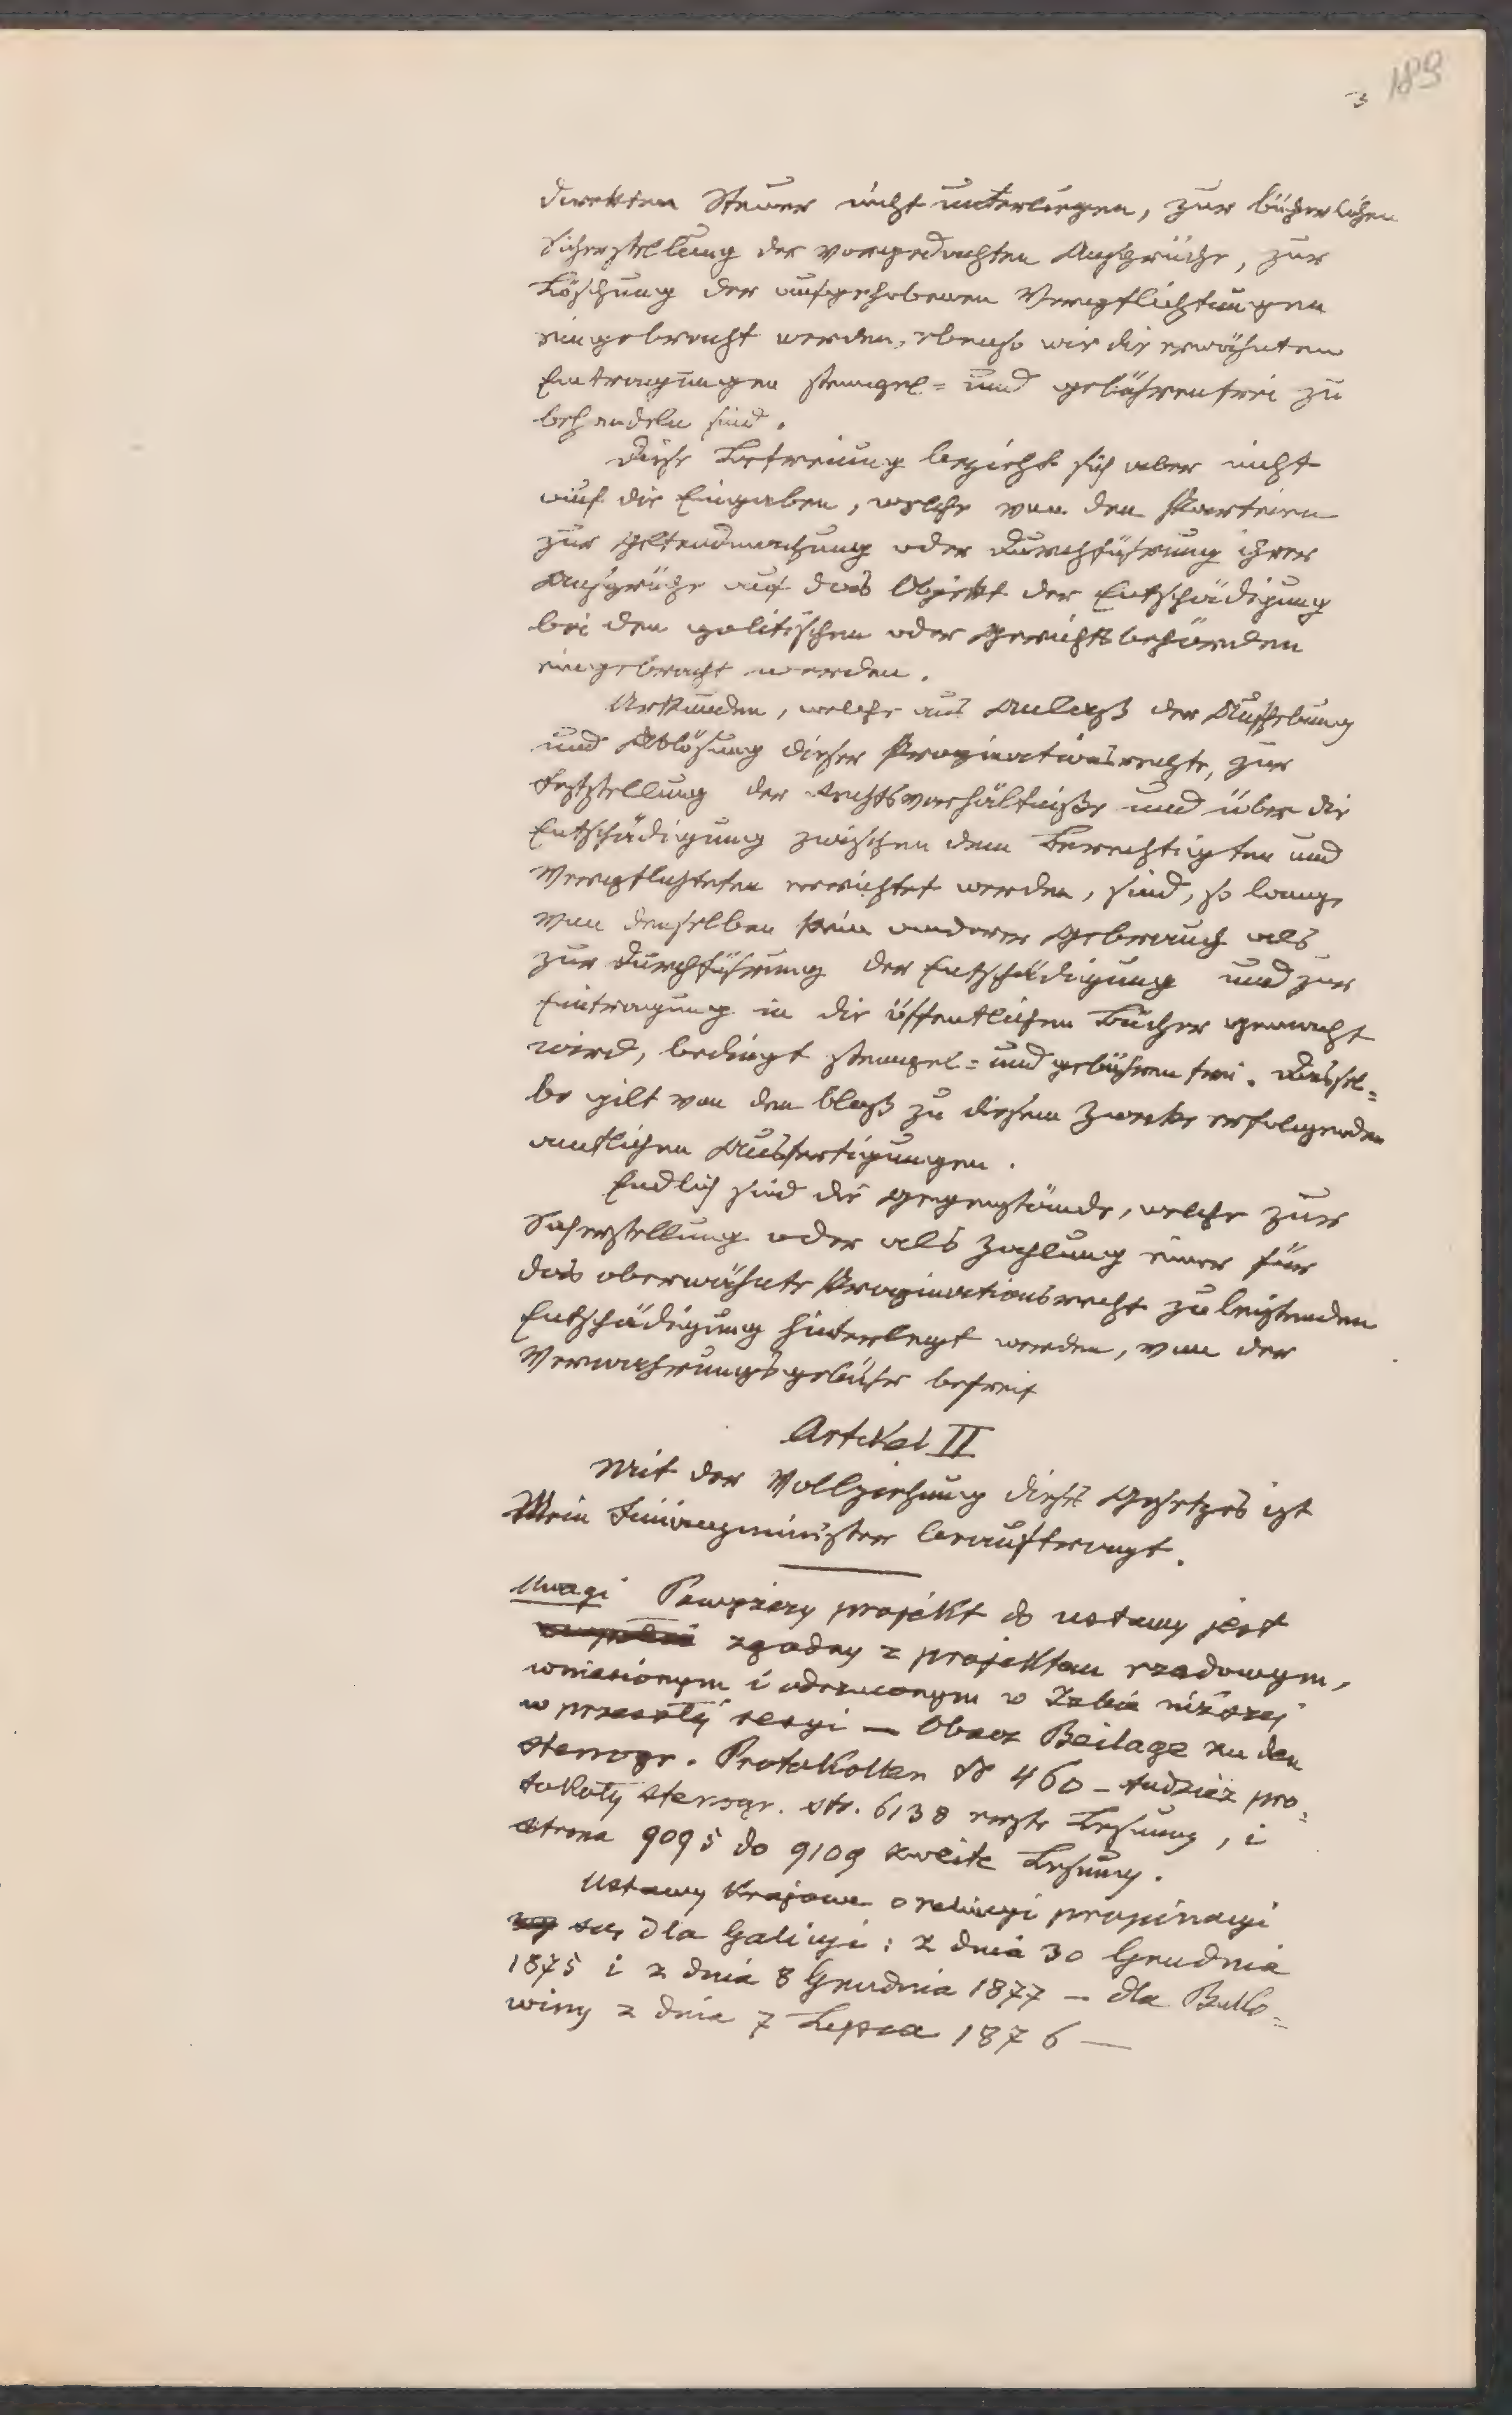 3 189
direkten Steuer nicht unterliegen, zur bücherlichen
Sicherstellung der vorgedachten Ansprüche, zur
Löschung der aufgehobenen Verpflichtungen
eingebracht werden, ebenso wie die erwähnten
Eintragungen stempel= und gebührenfrei zu
behandeln sind.
Diese Befreiung bezieht sich aber nicht
auf die Eingaben, welche von den Parteien
zur Geltendmachung oder Durchführung ihrer
Ansprüche auf das Objekt der Entschädigung
bei den politischen oder Gerichtsbehörden
eingebracht werden.
Urkunden, welche aus Anlaß der Aufhebung
und Ablösung dieser Propinationsrechte, zur
Feststellung der Rechtsverhältniße und über die
Entschädigung zwischen dem Berechtigten und
Verpflichteten errichtet werden, sind, so lange
von denselben kein anderer Gebrauch als
zur Durchführung der Entschädigung und zur
Eintragung in die öffentlichen Bücher gemacht
wird, bedingt stempel= und gebührenfrei. Dassel=
be gilt von den bloß zu diesem Zwecke erfolgenden
amtlichen Ausfertigungen.
Endlich sind die Gegenstände, welche zur
Sicherstellung oder als Zahlung einer für
das oberwähnte Propinationsrecht zu leistenden
Entschädigung hinterlegt werden, von der
Verwahrungsgebühr befreit
Artikel II
Mit der Vollziehung dieses Gesetzes ist
Mein Finanzminister beauftragt.
Uwagi Powyższy projekt do ustawy jest
zgodny z projektem rządowym,
wniesionym i odrzuconym w Izbie niższej
w przeszłéj sesyi — Obacz Beilage zu den
stenogr. Protokollen № 460 – tudzież pro=
tokoły stenogr. str. 6138 erste Lesung, i
strona 9095 do 9109 zweite Lesung.
Ustawy krajowe o propinacyi
są dla Galicyi: z dnia 30 Grudnia
1875 i z dnia 8 Grudnia 1877 — dla Buko=
winy z dnia 7 Lipca 1876 —